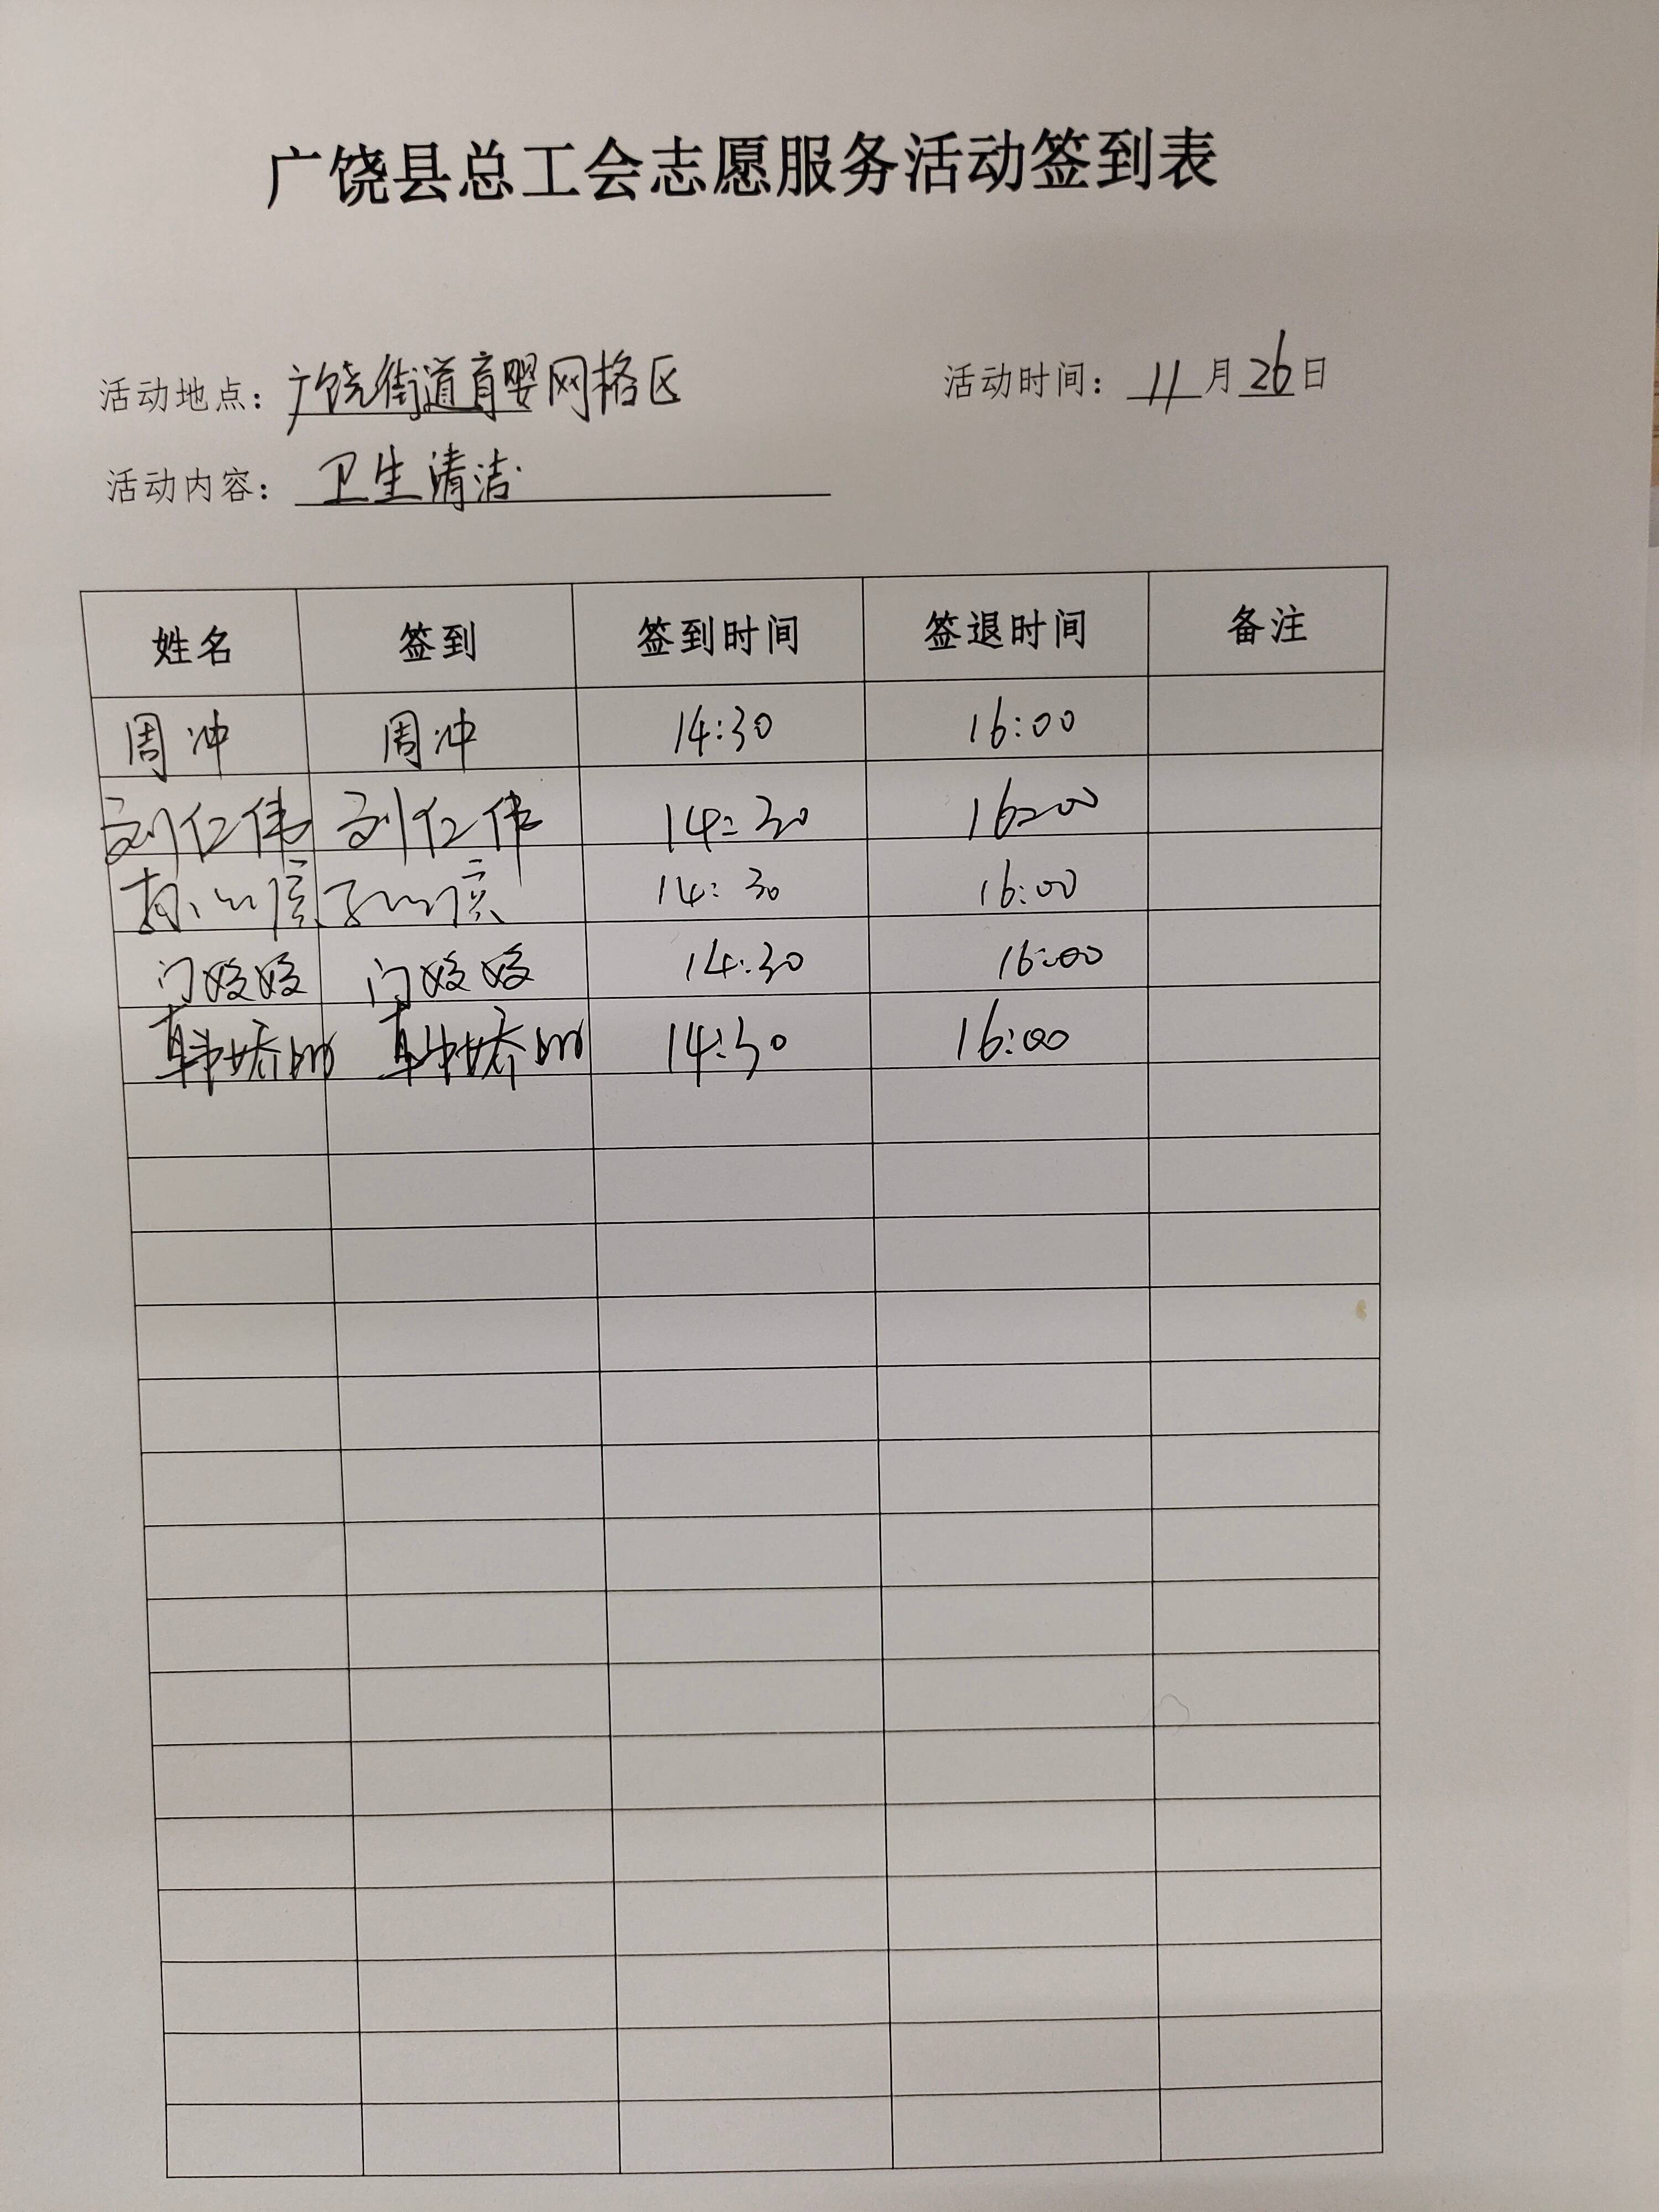 广饶县总工会志愿服务活动签到表
活动地点：广饶街道育婴网格区 活动时间：11月26日
活动内容：卫生清洁
姓名 签到 签到时间 签退时间 备注
周冲 周冲 14:30 16:00
刘仁伟 刘仁伟 14:30 16:00
14:30 16:00
门姣姣 门姣姣 14:30 16:00
韩娇 韩娇 14:30 16:00